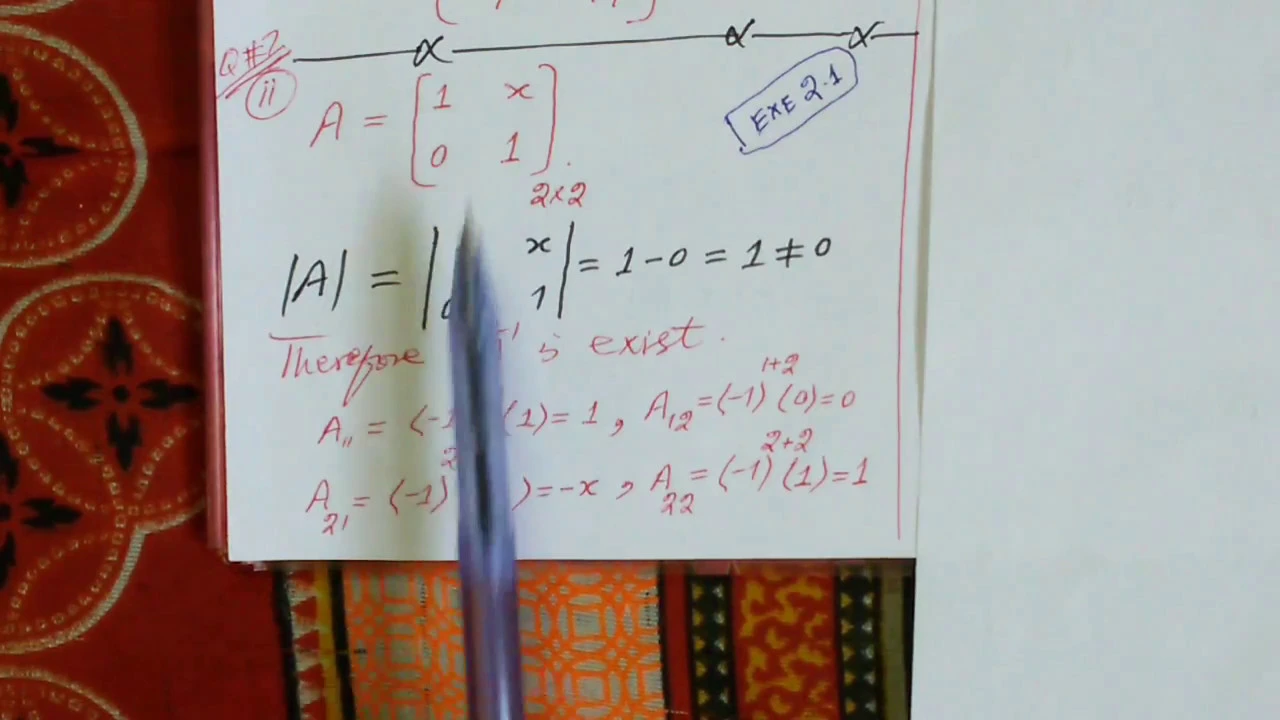 Q#2
ii
EXE 2.1
A = [ 1 x
0 1 ].
2×2
|A| = | x
1 | = 1 - 0 = 1 ≠ 0
Therefore is exist.
A11 = (-1 (1) = 1 , A12 = (-1)^1+2 (0) = 0
A21 = (-1)^2 ) = -x , A22 = (-1)^2+2 (1) = 1